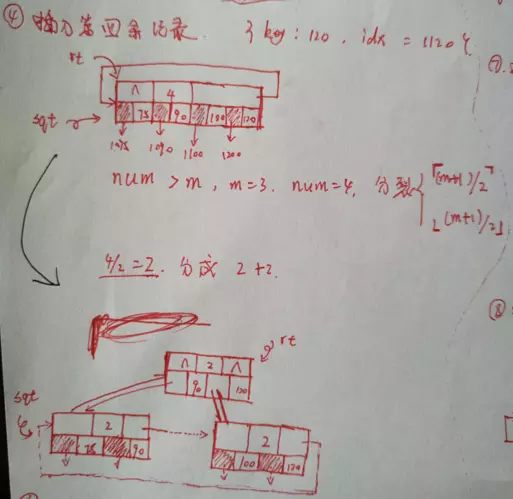 ④ 插入第四条记录. { key: 120, idx = 1120 }.
rt
∧ 4
sqt 75 90 100 120
1075 1090 1100 1200
num > m, m=3. num=4, 分裂 { ⌈(m+1)/2⌉
⌊(m+1)/2⌋
4/2=2. 分成 2+2.
rt
∧ 2 ∧
90 120
sqt
2 2
75 90 100 120